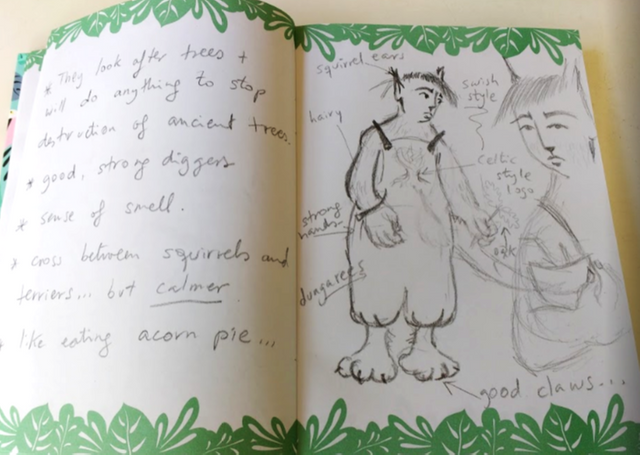 * They look after trees +
will do anything to stop
destruction of ancient trees.
* good, strong diggers
* sense of smell.
* cross between squirrels and
terriers... but calmer
* like eating acorn pie...
squirrel ears
hairy
swish
style
celtic
style
logo
strong
hands
oak
dungarees
good claws...